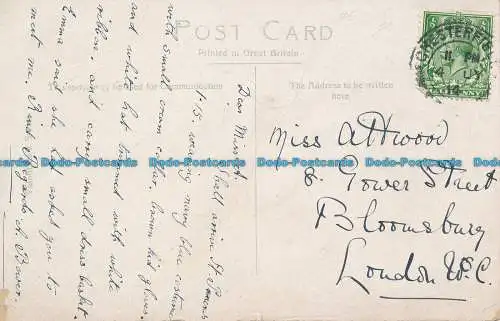 POST CARD
Printed in Great Britain
The Address to be written
here
CHESTERFIELD
14
Dear Miss A.
Shall arrive St Pancras
1-15. wearing navy blue costume
with small cream collar, brown kid gloves.
and white hat trimmed with white
ribbon, and carry small dress basket.
Emma said she had asked you to
meet me. Kind Regards A. Bower.
Miss Attwood
8. Gower Street
Bloomsbury
London W.C.
Dodo-Postcards Dodo-Postcards Dodo-Postcards Dodo-Postcards Dodo-Postcards Dodo-Postcards